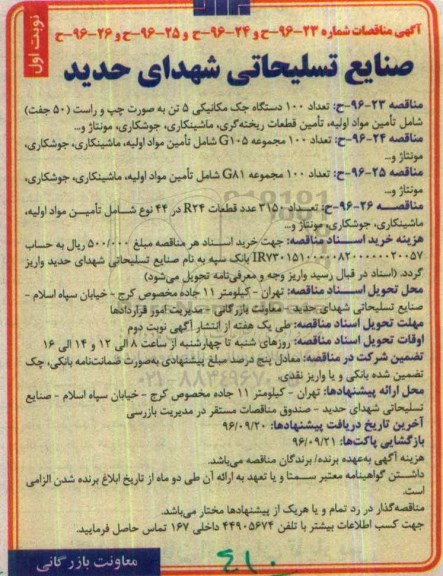 نوبت اول
آگهی مناقصات شماره ۲۳-۹۶-ح و ۲۴-۹۶-ح و ۲۵-۹۶-ح و ۲۶-۹۶-ح
صنایع تسلیحاتی شهدای حدید
مناقصه ۲۳-۹۶-ح: تعداد ۱۰۰ دستگاه جک مکانیکی ۵ تن به صورت چپ و راست (۵۰ جفت)
شامل تأمین مواد اولیه، تأمین قطعات ریخته‌گری، ماشینکاری، جوشکاری، مونتاژ و..
مناقصه ۲۴-۹۶-ح: تعداد ۱۰۰ مجموعه G105 شامل تأمین مواد اولیه، ماشینکاری، جوشکاری،
مونتاژ و...
مناقصه ۲۵-۹۶-ح: تعداد ۱۰۰ مجموعه G81 شامل تأمین مواد اولیه، ماشینکاری، جوشکاری،
مونتاژ و..
مناقصه ۲۶-۹۶-ح: تعداد ۳۱۵۰ عدد قطعات R24 در ۴۴ نوع شامل تأمین مواد اولیه،
ماشینکاری، جوشکاری، مونتاژ و..
هزینه خرید اسناد مناقصه: جهت خرید اسناد هر مناقصه مبلغ ۵۰۰/۰۰۰ ریال به حساب
بانک سپه به نام صنایع تسلیحاتی شهدای حدید واریز
گردد. (اسناد در قبال رسید واریز وجه و معرفی‌نامه تحویل می‌شود)
محل تحویل اسناد مناقصه: تهران - کیلومتر ۱۱ جاده مخصوص کرج - خیابان سپاه اسلام -
صنایع تسلیحاتی شهدای حدید - معاونت بازرگانی - مدیریت امور قراردادها
مهلت تحویل اسناد مناقصه: طی یک هفته از انتشار آگهی نوبت دوم
اوقات تحویل اسناد مناقصه: روزهای شنبه تا چهارشنبه از ساعت ۸ الی ۱۲ و ۱۴ الی ۱۶
تضمین شرکت در مناقصه: معادل پنج درصد مبلغ پیشنهادی به‌صورت ضمانت‌نامه بانکی، چک
تضمین شده بانکی و یا واریز نقدی.
محل ارائه پیشنهادها: تهران - کیلومتر ۱۱ جاده مخصوص کرج - خیابان سپاه اسلام - صنایع
تسلیحاتی شهدای حدید - صندوق مناقصات مستقر در مدیریت بازرسی
آخرین تاریخ دریافت پیشنهادها: ۹۶/۰۹/۲۰
بازگشایی پاکت‌ها: ۹۶/۰۹/۲۱
هزینه آگهی به‌عهده برنده/برندگان مناقصه می‌باشد.
داشتن گواهینامه معتبر سمتا و یا تعهد به ارائه آن طی دو ماه از تاریخ ابلاغ برنده شدن الزامی
است.
مناقصه‌گذار در رد تمام و یا هریک از پیشنهادها مختار می‌باشد.
جهت کسب اطلاعات بیشتر با تلفن ۴۴۹۰۵۶۷۴ داخلی ۱۶۷ تماس حاصل فرمایید.
معاونت بازرگانی